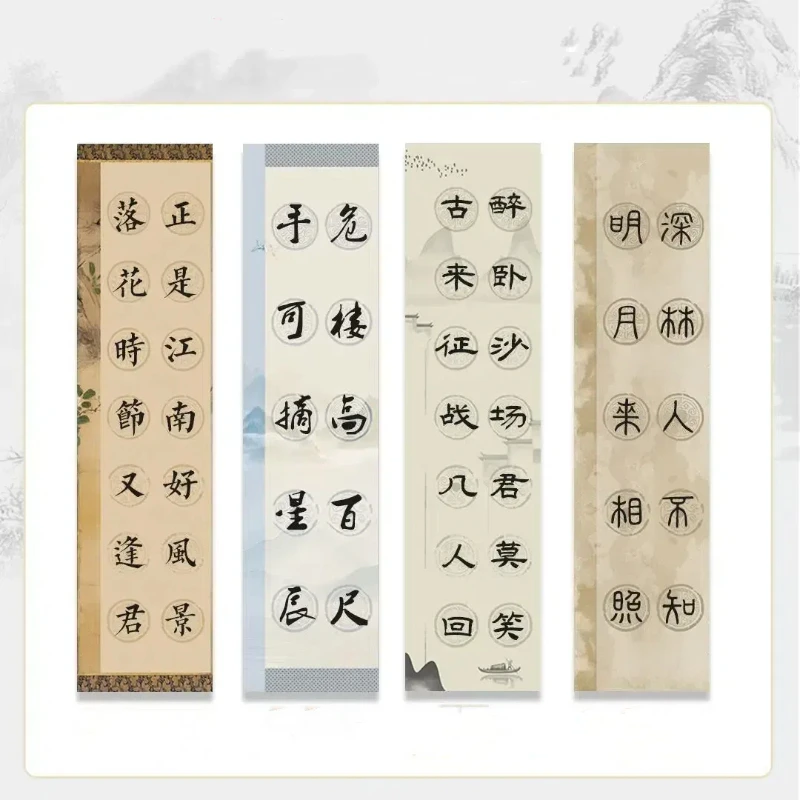 正是江南好風景
落花時節又逢君
危楼高百尺
手可摘星辰
醉卧沙场君莫笑
古来征战几人回
深林人不知
明月来相照